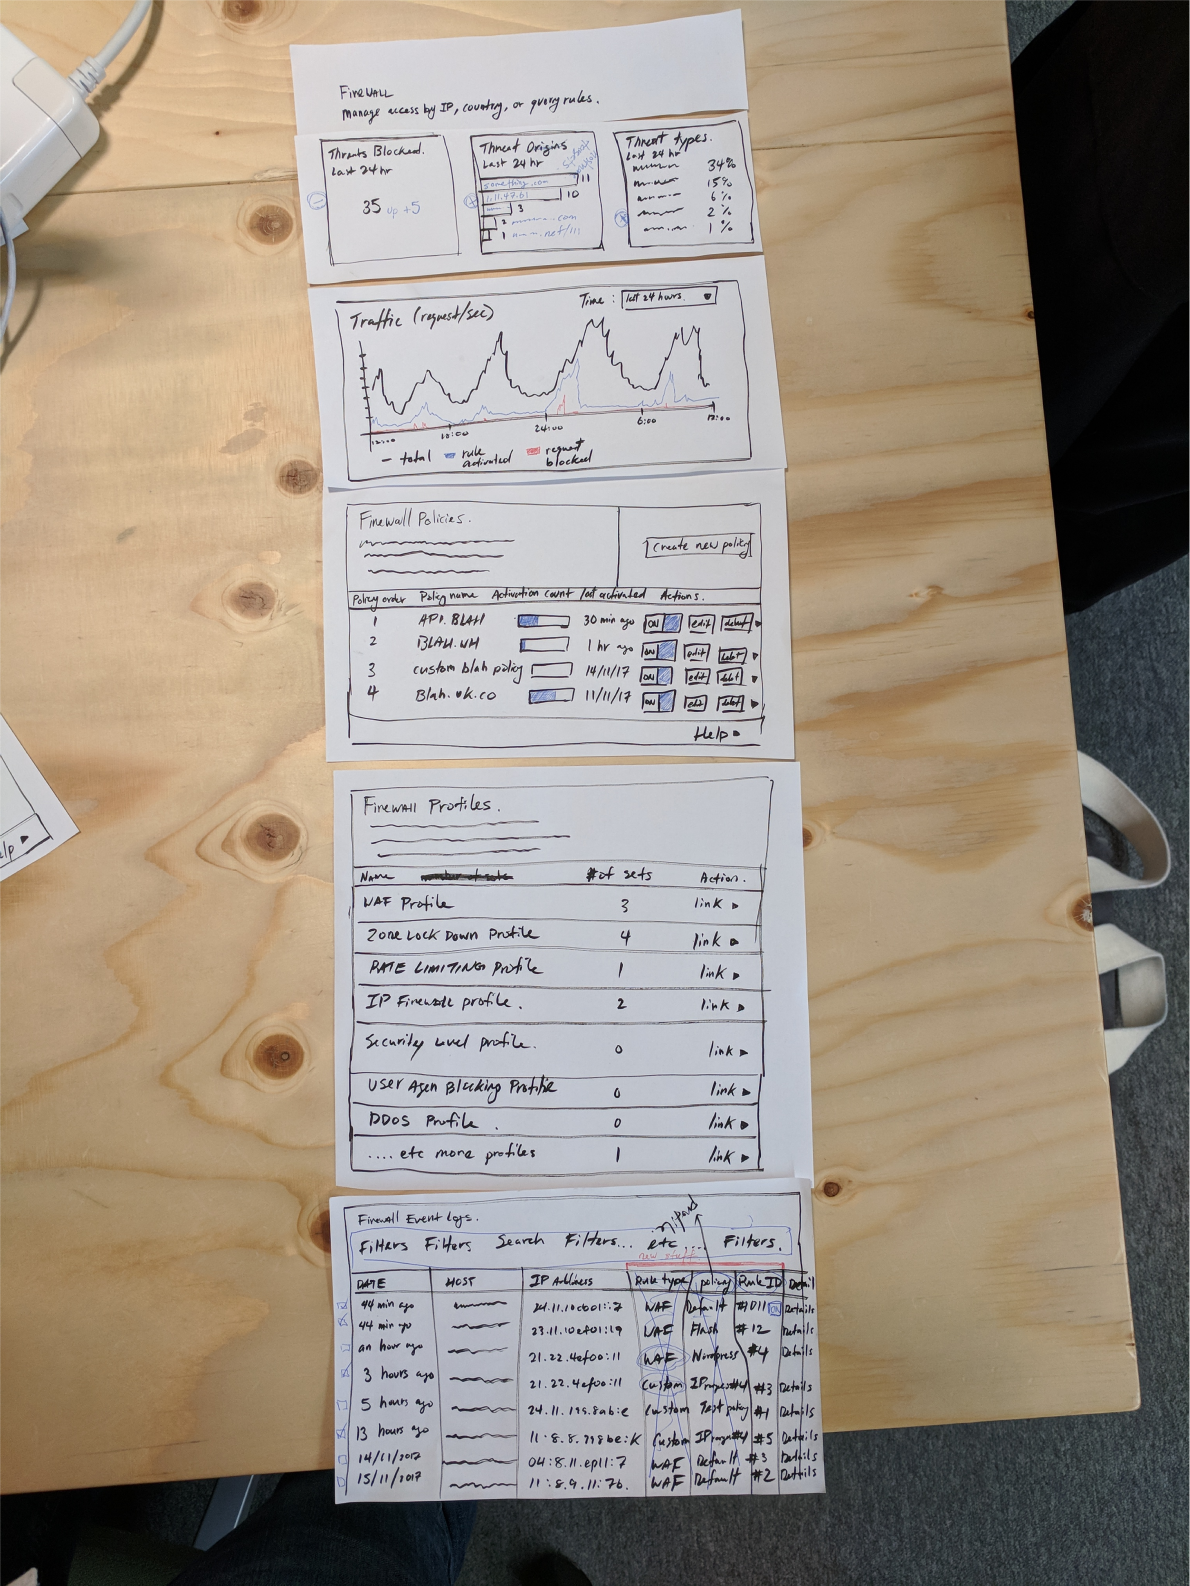 Firewall
manage access by IP, country, or query rules.
Threats Blocked.
Last 24 hr
35 up +5
Threat Origins
Last 24 hr
something.com 11
1.11.47.61 10
3
2 .com
1 .net/111
Threat types.
Last 24 hr
34%
15%
6%
2%
1%
Traffic (request/sec)
Time : last 24 hours.
12:00 18:00 24:00 6:00 12:00
total rule activated request blocked
Firewall Policies.
Create new policy
Policy order Policy name Activation count last activated Actions.
1 API.BLAH 30 min ago ON edit
2 BLAH.WH 1 hr ago ON edit
3 custom blah policy 14/11/17 ON edit
4 Blah.uk.co 11/11/17 ON edit
Help
Firewall Profiles.
Name # of sets Action.
WAF Profile 3 link
Zone Lock Down Profile 4 link
RATE LIMITING Profile 1 link
IP Firewall profile. 2 link
Security Level profile. 0 link
User Agen Blocking Profile 0 link
DDOS Profile. 0 link
.... etc more profiles 1 link
lp
Firewall Event Logs.
Filters Filters Search Filters... etc .... Filters.
new stuff
DATE HOST IP Address Rule type policy Rule ID Detail
44 min ago WAF Default #1011 ON Details
44 min go 23.11.10ef01:19 WAF Flash #12 Details
an hour ago 21.22.4ef00:11 WAF Wordpress #4 Details
3 hours ago 21.22.4ef00:11 Custom #3 Details
5 hours ago 24.11.199.8ab:e Custom Test policy #1 Details
13 hours ago 11:8.8.798be:K Custom #5 Details
14/11/2017 04:8.11.ep11:7 WAF Default #3 Details
15/11/2017 11:8.9.11:76. WAF Default #2 Details